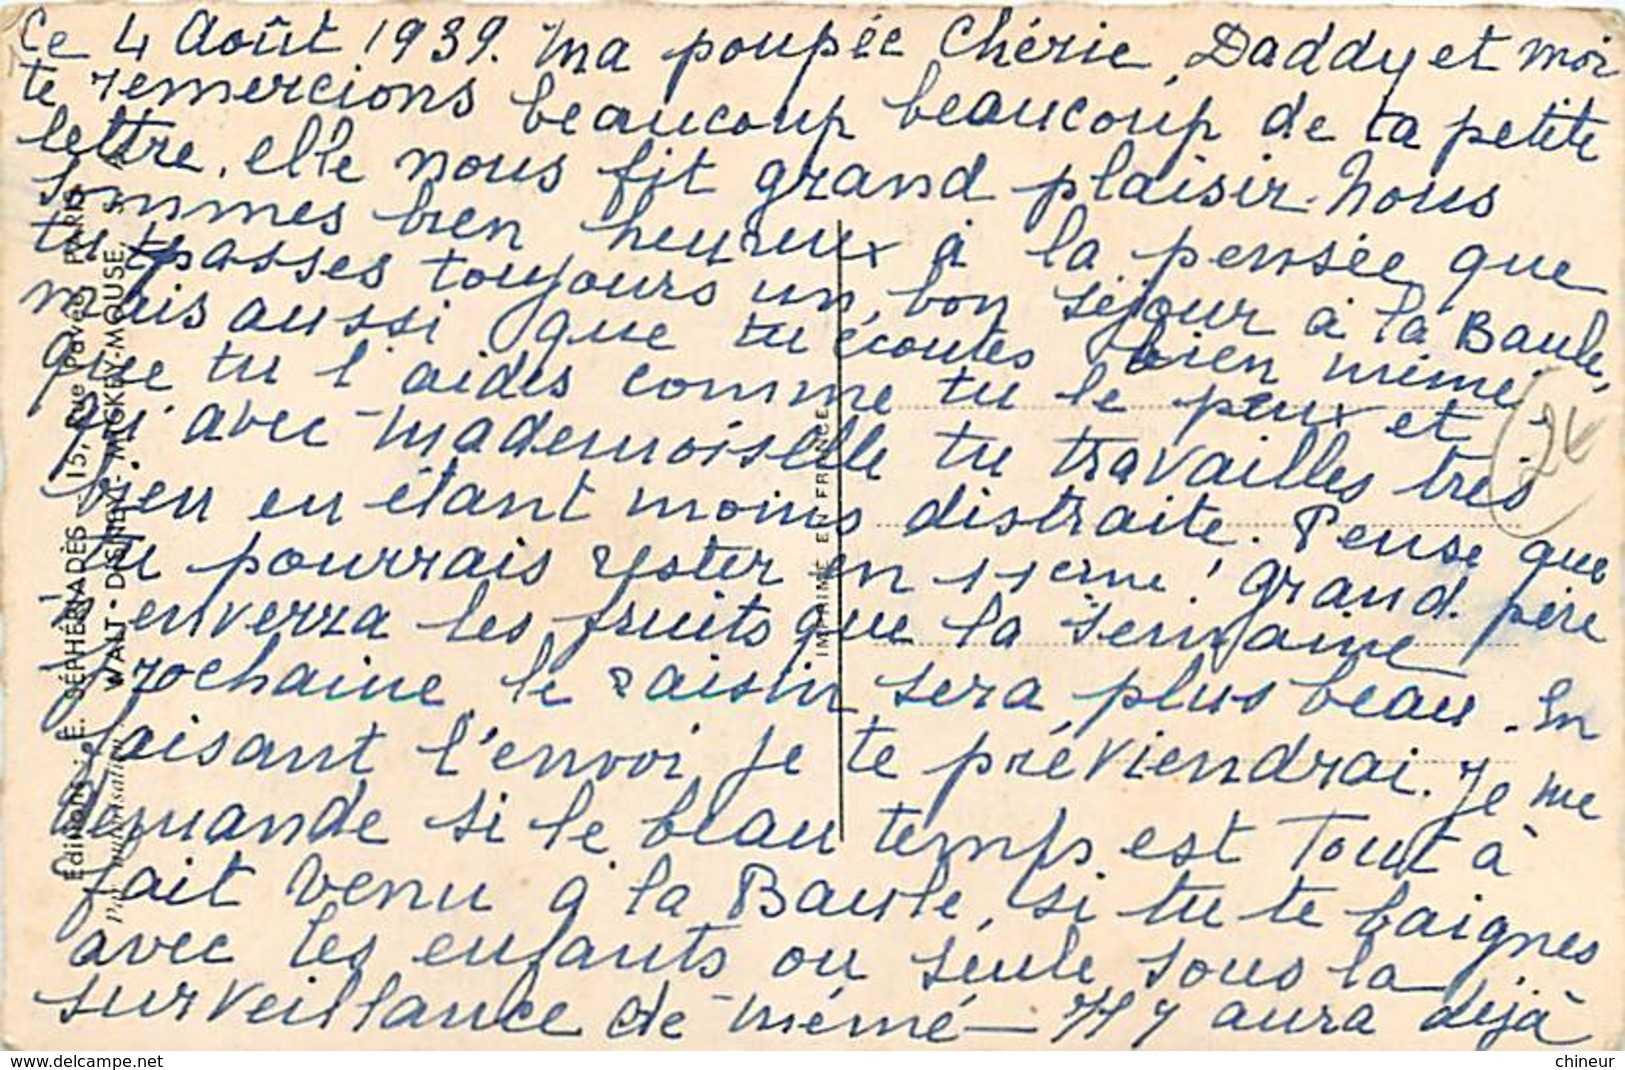 Ce 4 Août 1939. Ma poupée Chérie, Daddy et moi
te remercions beaucoup beaucoup de ta petite
lettre, elle nous fit grand plaisir. Nous
sommes bien heureux à la pensée que
tu passes toujours un bon séjour à la Baule,
mais aussi que tu écoutes bien mémé
que tu l'aides comme tu le peux et
qu'avec Mademoiselle tu travailles très
bien en étant moins distraite. Pense que
tu pourrais rester en 11ème ! Grand père
n'enverra les fruits que la semaine
prochaine, le raisin sera plus beau. En
faisant l'envoi, je te préviendrai. Je me
demande si le beau temps est tout à
fait venu à la Baule, si tu te baignes
avec les enfants ou seule sous la
surveillance de mémé — Il y aura déjà
Editions E. SÉPHÉRIADÈS - 15, Rue Pavée, PARIS
WALT-DISNEY - MICKEY-MOUSE, S. A.
Par autorisation
IMPRIMÉ EN FRANCE
www.delcampe.net
chineur